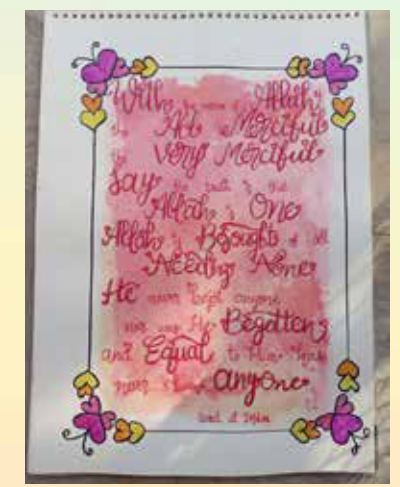 With the name of Allah
the All Merciful
the Very Merciful
Say the truth is that
Allah is One
Allah is Besought of all
Needing None
He never begot anyone
nor was He Begotten
and Equal to Him has
never been anyone